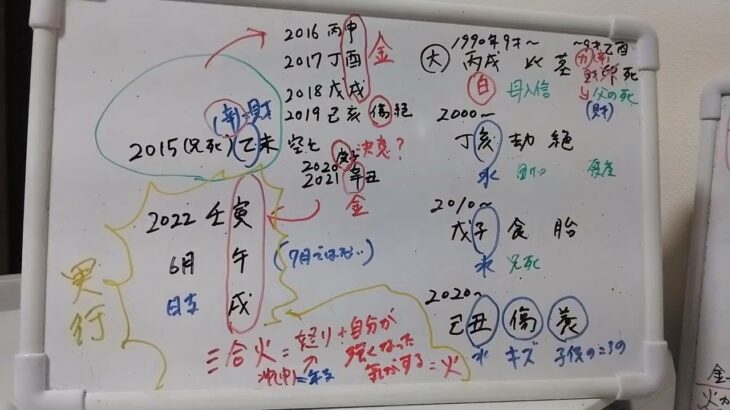 2016 丙申
2017 丁酉 金
2018 戊戌
2019 己亥 傷 絶
(辛) 財
2015(兄死) 乙未 空亡
2020 庚子 決意?
2021 辛丑
金
2022 壬寅
6月 午
日支 戌
実行
三合火=怒り+自分が
強くなった
気がする=火
大 1990年9才~
丙戌 比 墓
自 母入信
~9才乙酉
財 死
父の死
(財)
2000~
丁亥 劫 絶
水
2010~
戊子 食 胎
水 兄死
2020~
己丑 傷 養
水 キズ 子供のころの
金
火